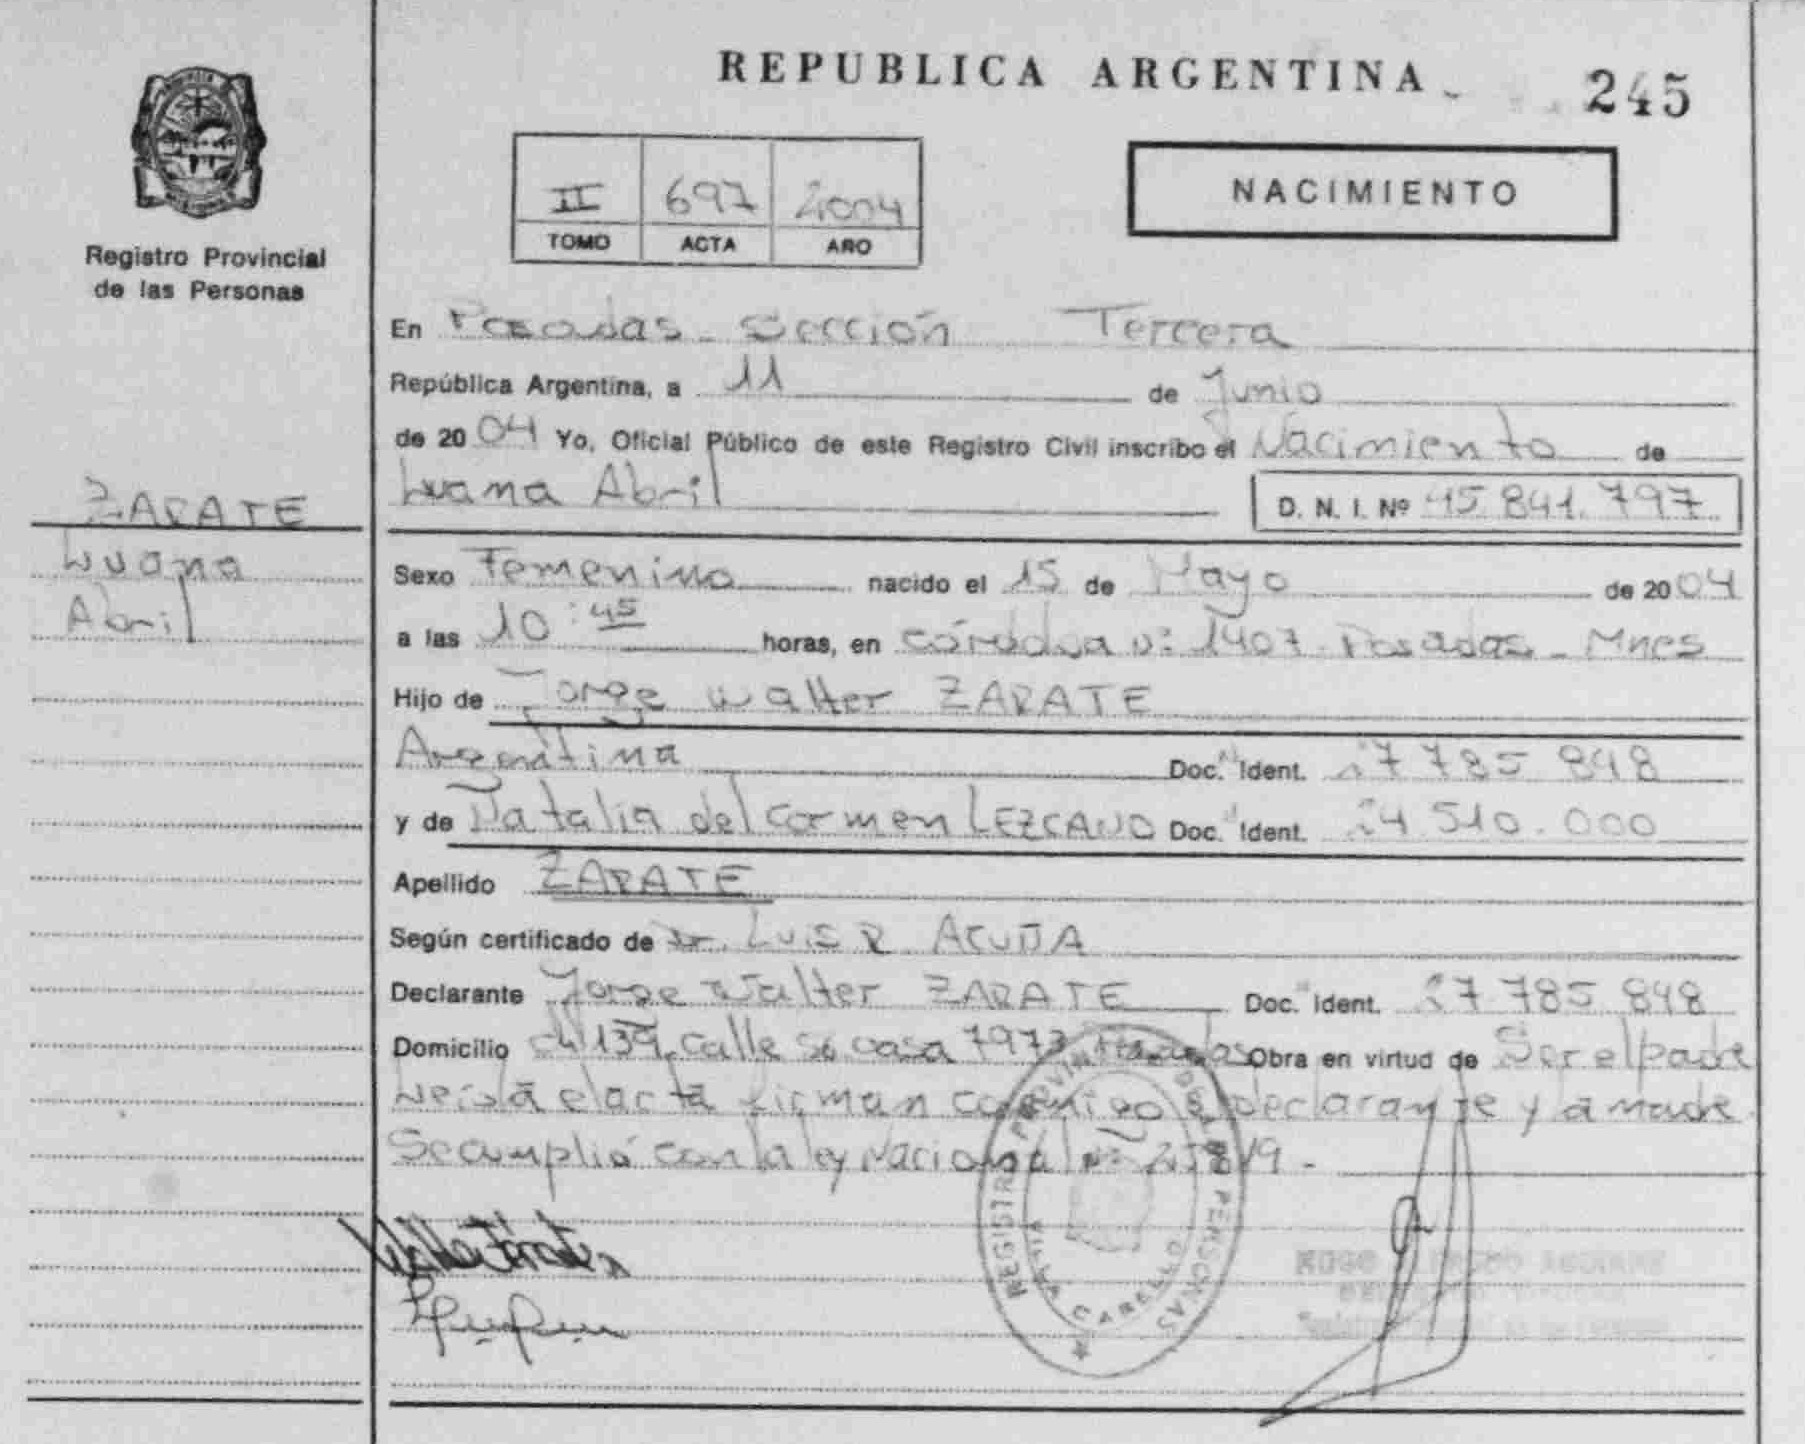 REPUBLICA ARGENTINA
245
II 697 2004
TOMO ACTA AÑO
NACIMIENTO
Registro Provincial
de las Personas
En Posadas - Sección Tercera
República Argentina, a 11 de Junio
de 2004 Yo, Oficial Público de este Registro Civil inscribo el Nacimiento de
Luana Abril D. N. I. Nº 45.841.797
ZARATE
Luana
Abril
Sexo Femenino nacido el 15 de Mayo de 2004
a las 10:45 horas, en Córdoba nº 1407 Posadas - Mnes
Hijo de Jorge Walter ZARATE
Argentina Doc. Ident. 27 785 848
y de Natalia del Carmen LEZCANO Doc. Ident. 24.510.000
Apellido ZARATE
Según certificado de Dr. Luis R ACUÑA
Declarante Jorge Walter ZARATE Doc. Ident. 27 785 848
Domicilio Ch 139 calle casa 7973 Posadas Obra en virtud de Ser el padre
Leída el acta firman conmigo el declarante y la madre.
Se cumplió con la ley Nacional Nº 25819.-
REGISTRO PROVINCIAL DE LAS PERSONAS
VILLA CABELLO